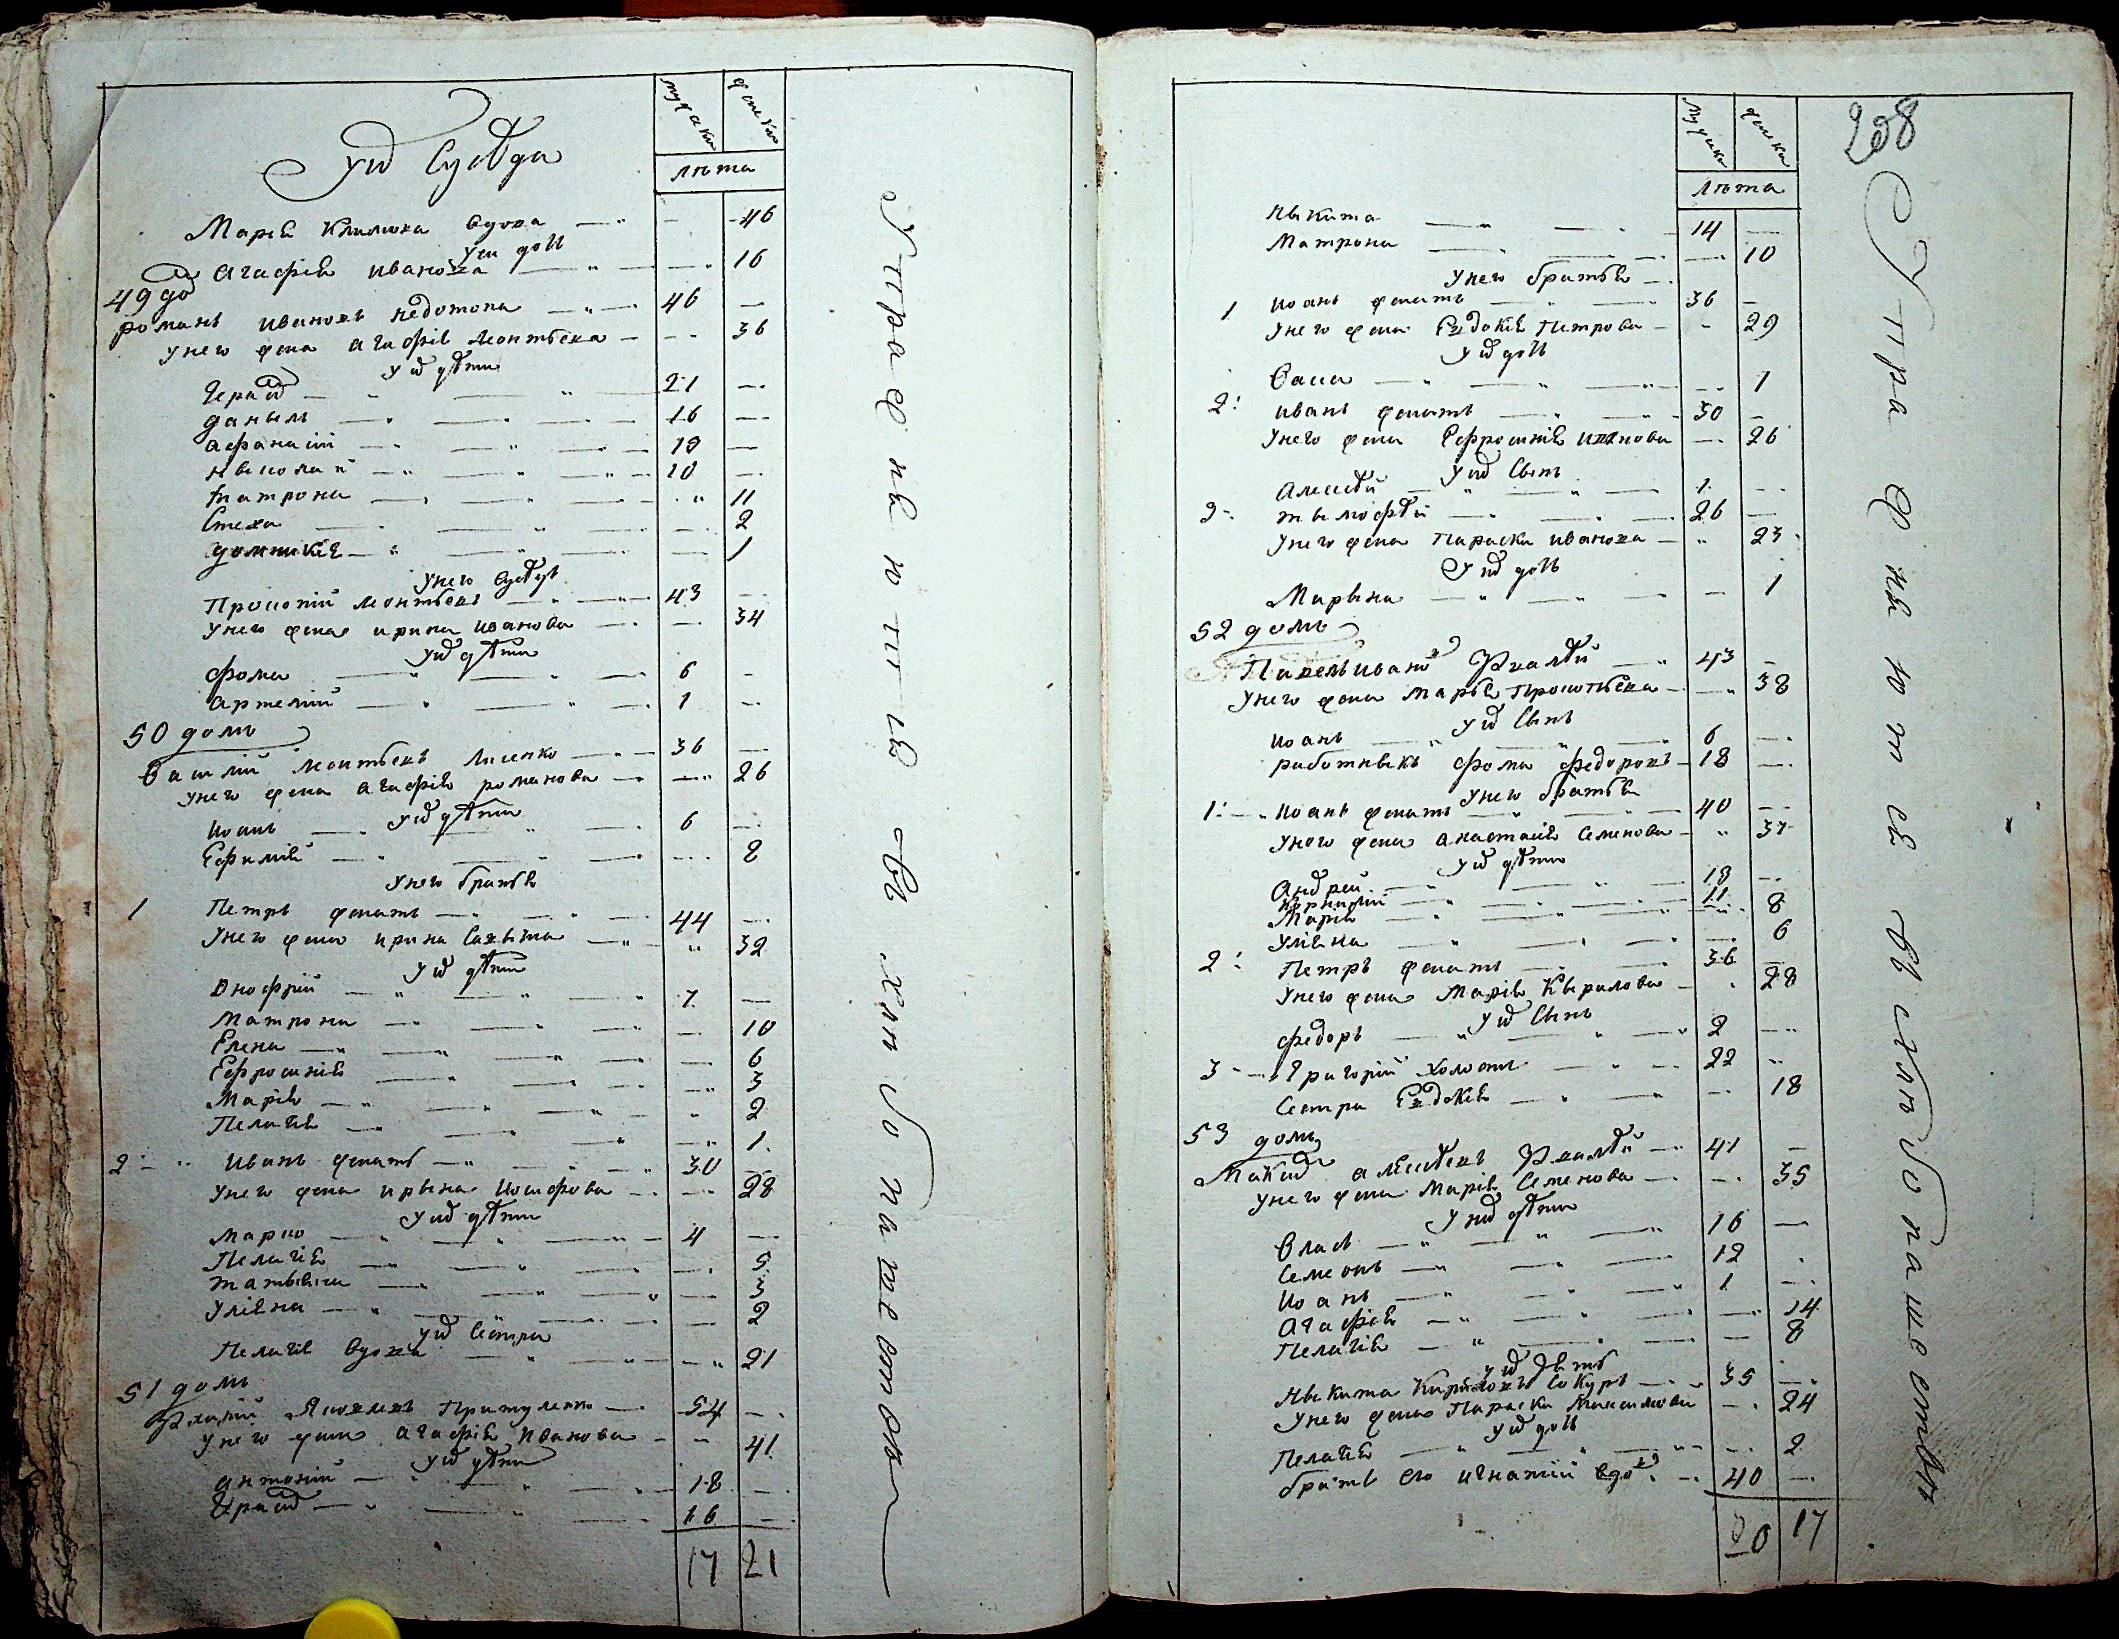 мужска
женска
лѣта
У них Сусѣда
Марія Климова вдова 46
У ней дочь
Агафія Иванова 16
49 дом
Романъ Ивановъ Недотопа 46
У него жена Агафія Леонтѣева 36
У них дѣти
Герасим 21
Данылъ 16
Афанасій 13
Ныколай 10
Матрона 11
Стеха 2
Домникія 1
У него Сусѣдъ
Прокопій Леонтѣевъ 43
У него жена Ирина Иванова 34
У них дѣти
Фома 6
Артемій 1
50 домъ
Василій Леонтѣевъ Лисенко 36
У него жена Агафія Романова 26
У них дѣти
Иоанъ 6
Ефимія 8
У него братья
1 Петръ женатъ 44
У него жена Ирина Савына 32
У них дѣти
Онофрій 7
Матрона 10
Елена 6
Ефросинія 3
Марія 2
Пелагія 1
2 Иванъ женатъ 30
У него жена Ирына Иосифова 28
У них дѣти
Марко 4
Пелагія 5
Татыана 3
Уліяна 2
У них Сестра
Пелагія вдова 21
51 домъ
Яковлевъ Притуленко 54
У него жена Агафія Иванова 41
У них дѣти
Антоній 18
Герасим 16
17 21
У праженяются въ хлѣбопашествѣ
мужска
женска
лѣта
238
Ныкита 14
Матрона 10
У него братья
1 Иоанъ женатъ 36
У него жена Евдокія Петрова 29
У них дочь
Васса 1
2 Иванъ женатъ 30
У него жена Ефросинія Иванова 26
У них Сынъ
Алексѣй 1
3 Тымофѣй 26
У него жена Параска Иванова 23
У них дочь
Марына 1
52 домъ
Павелъ Иванов 43
У него жена Марья Прокопьева 38
У них Сынъ
Иоанъ 6
Работныкъ Фома Федоровъ 18
У него братья
1 Иоанъ женатъ 40
У него жена Анастасія Семенова 37
У них дѣти
Андрей 13
Корнилій 11
Марія 8
Уліяна 6
2 Петръ женатъ 36
У него жена Марія Кырилова 28
У них Сынъ
Федоръ 2
3 Григорій холостъ 22
Сестра Евдокія 18
53 домъ
Максим Алексѣевъ 41
У него жена Марія Семенова 35
У них дѣти
Власъ 16
Семенъ 12
Иоанъ 1
Агафія 14
Пелагія 8
Ныкита Кириловъ Сокуръ 35
У него жена Параска Максимова 24
У них дочь
Пелагія 2
братъ его Игнатій вдов 40
20 17
У праженяются въ хлѣбопашествѣ